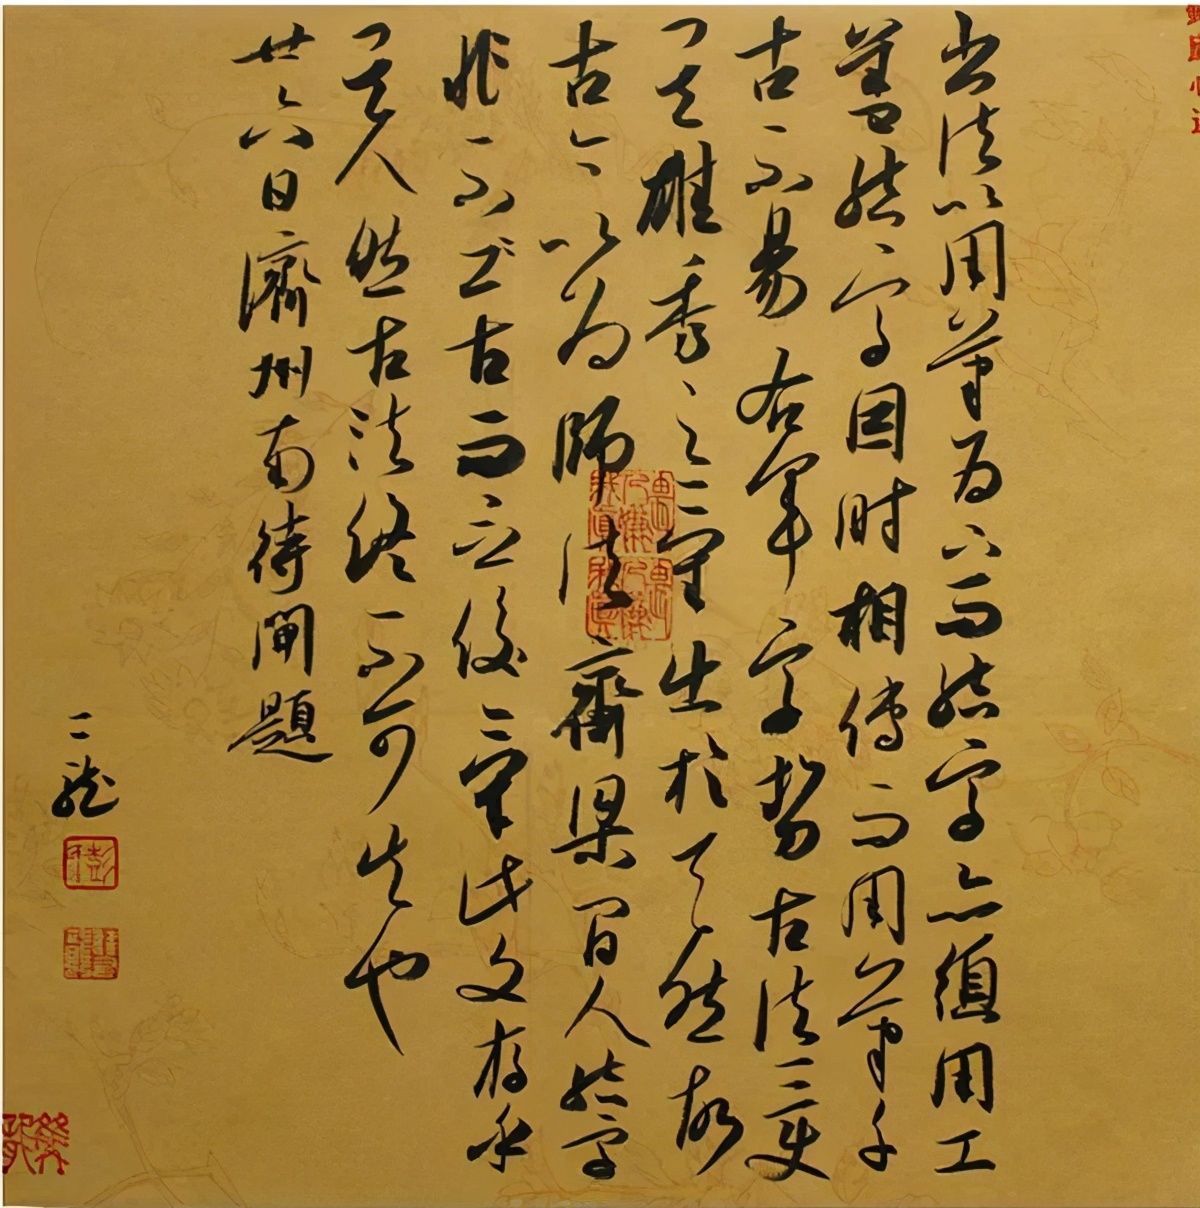 书法以用筆为上而结字亦須用工
蓋结字因时相傳而用筆千
古不易右軍字勢古法一变
其雄秀之氣出於天然故
古今以为師法齊梁間人结字
非不古而乏俊氣此又存乎
其人然古法终不可失也
廿六日濟州南待閘題
二龍